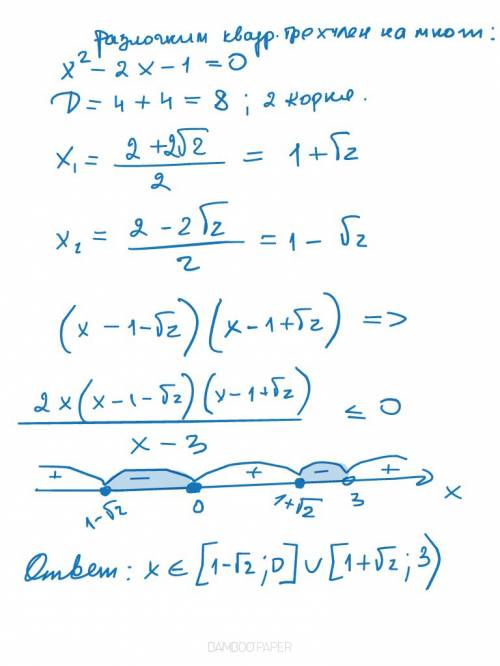 Разложим квадр. трехчлен на множ:
x² - 2x - 1 = 0
D = 4 + 4 = 8 ; 2 корня.
x₁ = (2 + 2√2)/2 = 1 + √2
x₂ = (2 - 2√2)/2 = 1 - √2
(x - 1 - √2)(x - 1 + √2) =>
2x(x - 1 - √2)(x - 1 + √2)/(x - 3) ≤ 0
+ − + − +
1-√2 0 1+√2 3 x
Ответ: x ∈ [1-√2; 0] ∪ [1+√2; 3)
BAMBOO PAPER